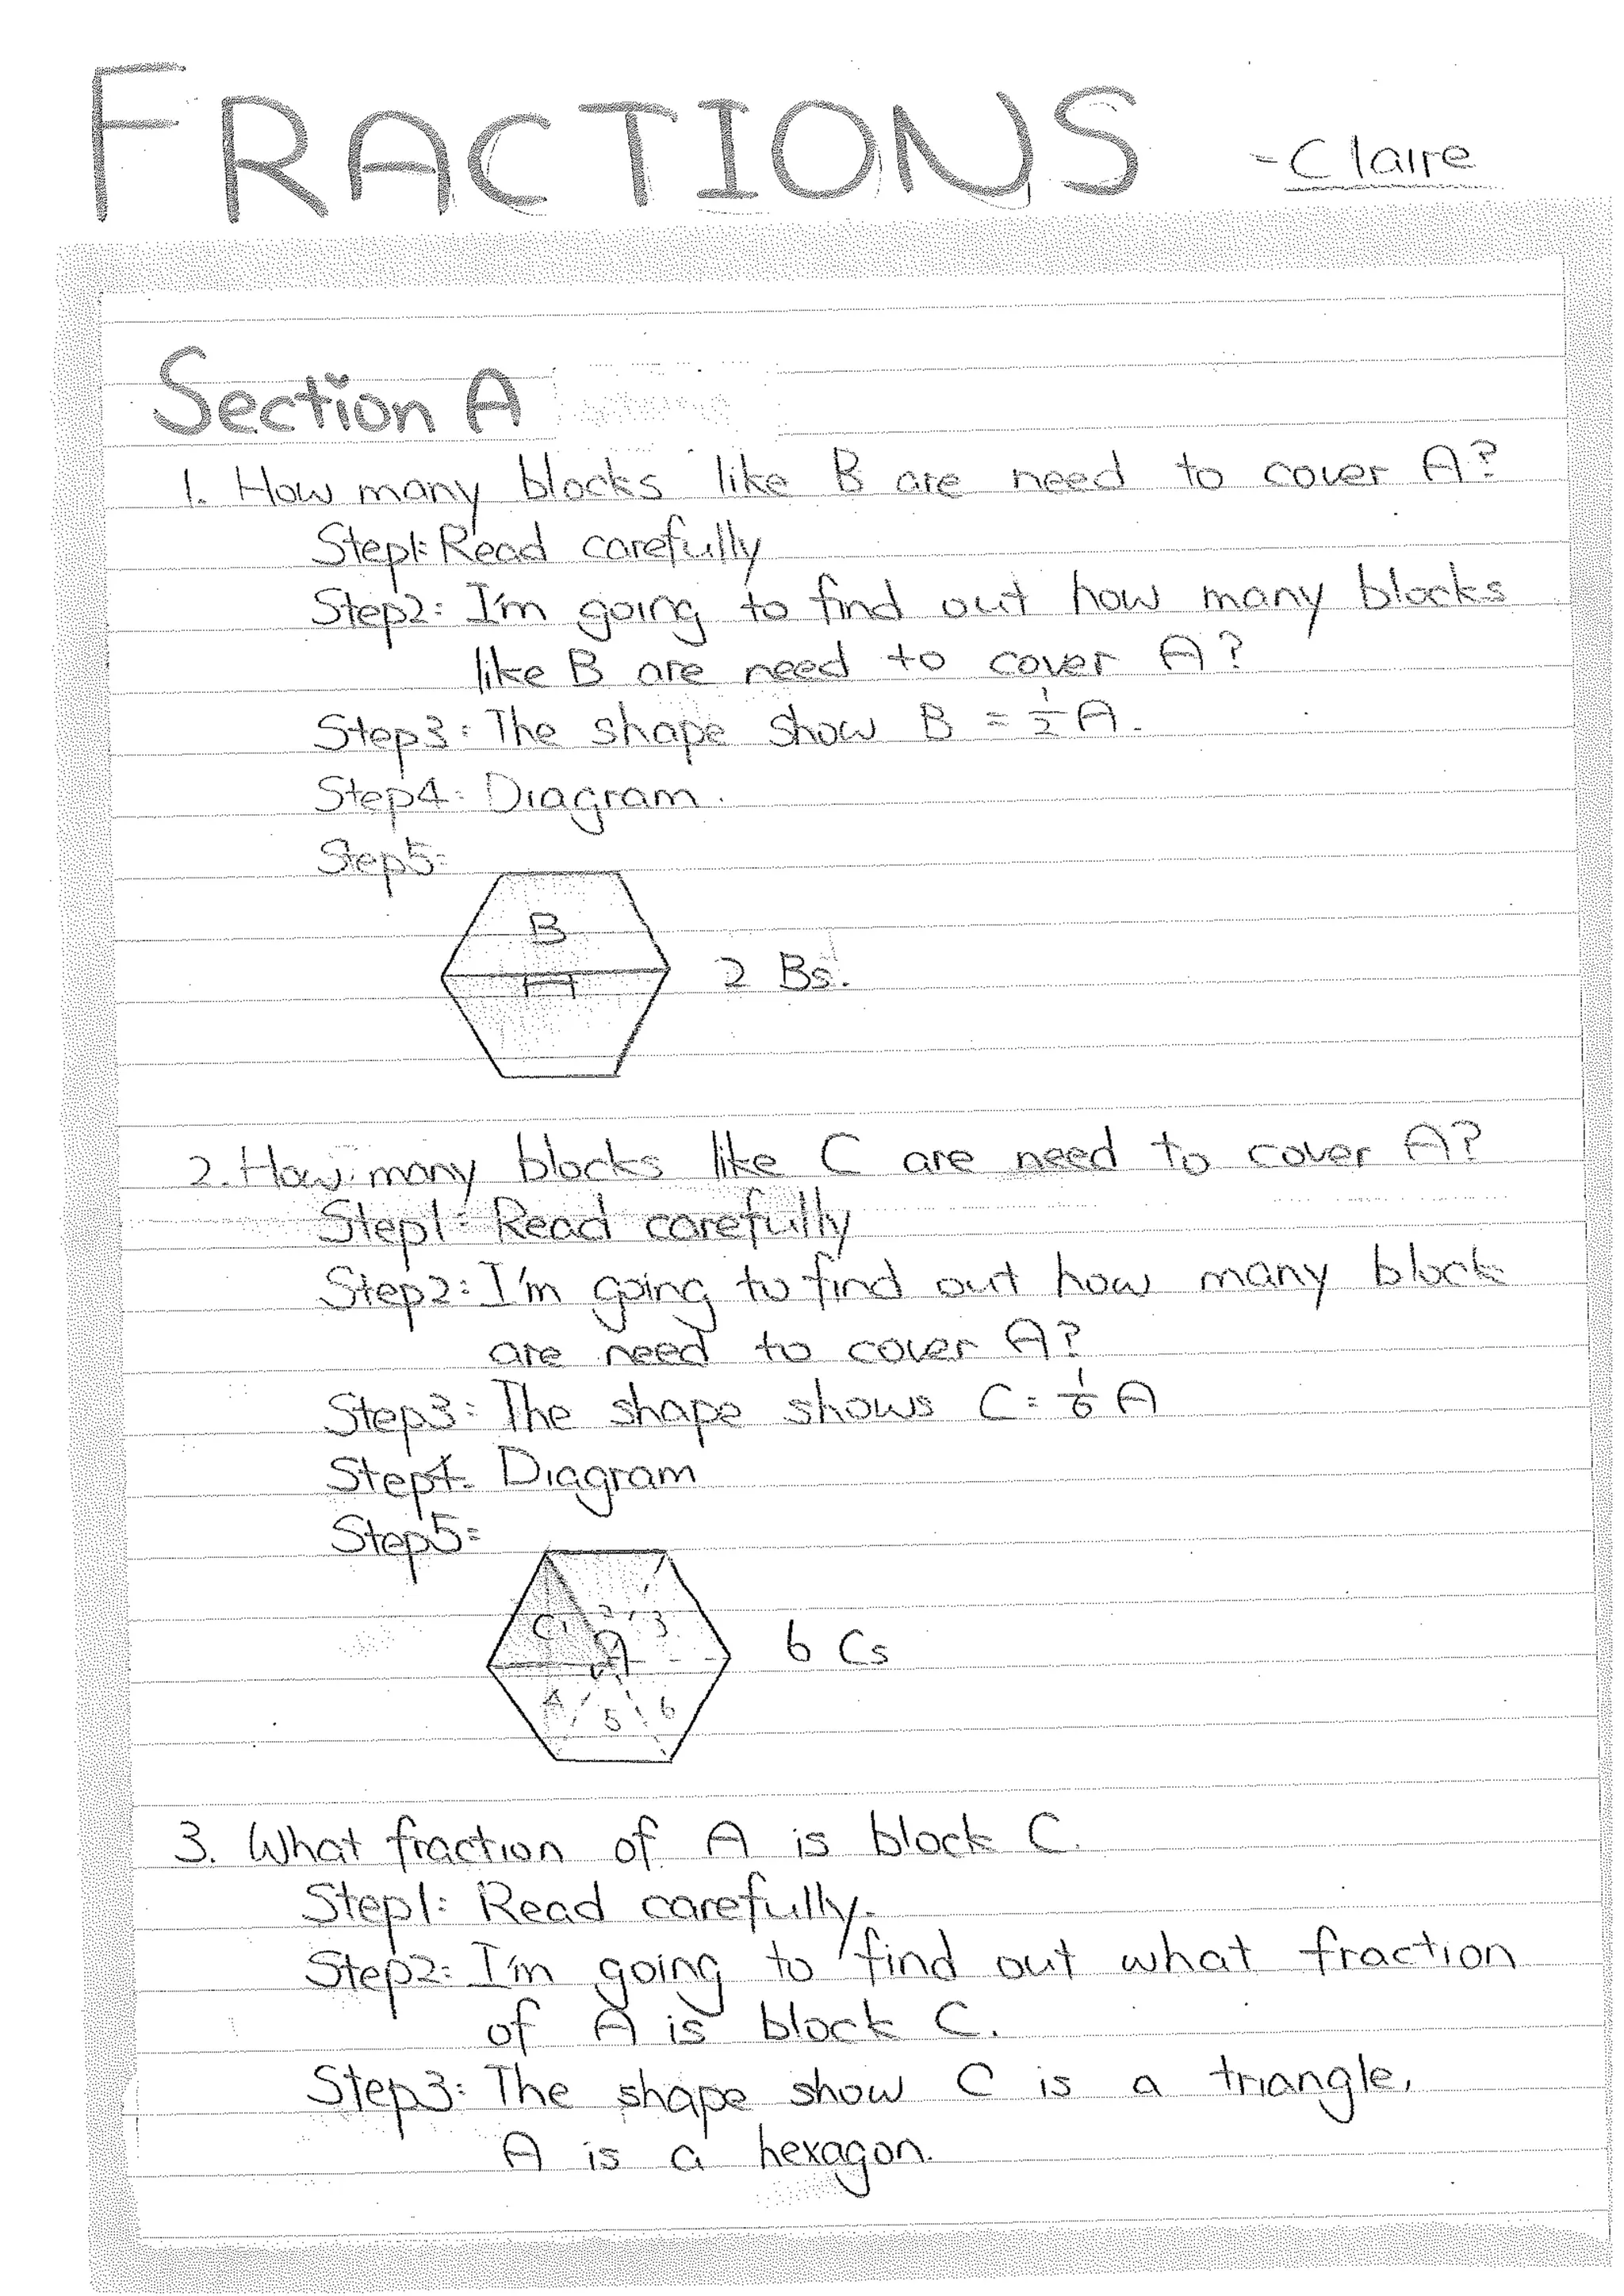 FRACTIONS - Claire
Section A
1. How many blocks like B are need to cover A?
Step1: Read carefully
Step2: I'm going to find out how many blocks
like B are need to cover A?
Step3: The shape show B = 1/2 A.
Step4: Diagram.
Step5:
B
A
2 Bs.
2. How many blocks like C are need to cover A?
Step1: Read carefully
Step2: I'm going to find out how many block
are need to cover A?
Step3: The shape shows C = 1/6 A
Step4: Diagram
Step5:
C 1 2 3
A
6 Cs
4 5 6
3. What fraction of A is block C.
Step1: Read carefully.
Step2: I'm going to find out what fraction
of A is block C.
Step3: The shape show C is a triangle,
A is a hexagon.